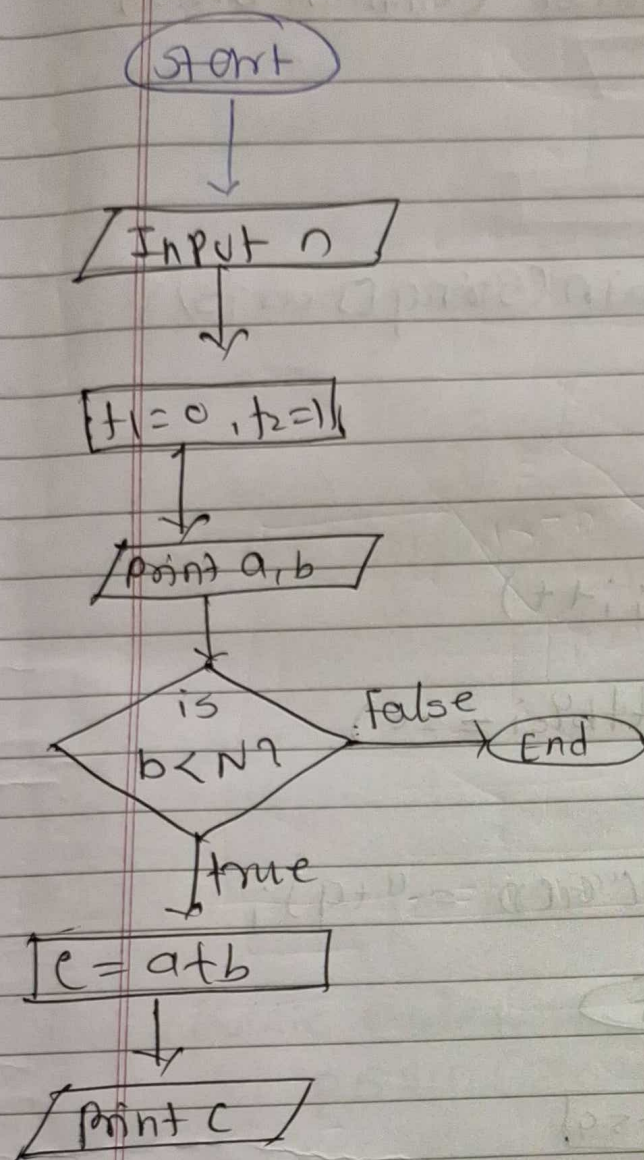 Start
Input n
t1=0, t2=1
print a,b
is
b<N?
False
End
true
c=a+b
print c